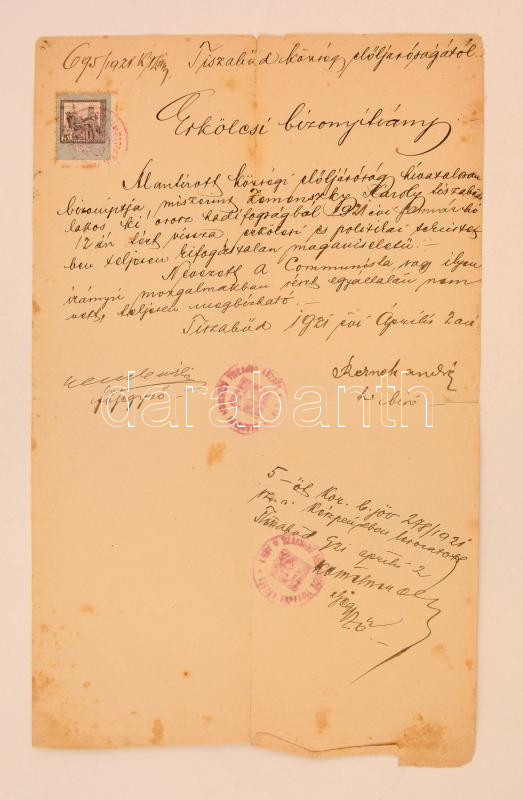 695/1921 Tiszabűd község elöljáróságától.
Erkölcsi bizonyítvány
Alantirott községi elöljáróság hivatalosan
bizonyítja miszerint Károly tiszabűdi
lakos, ki orosz hadifogságból 1921 évi január hó
12 én tért vissza erkölcsi és politikai tekintet-
ben teljesen kifogástalan magaviseletű. –
Nevezett a Communista vagy ilyen
irányú mozgalmakban részt egyáltalán nem
vett, teljesen megbízható. –
Tiszabűd 1921 évi Április 2 án
főjegyző
biró
darabanth
5-öt Kor. b. jöv 278/1921
Tiszabűd 921 április 2